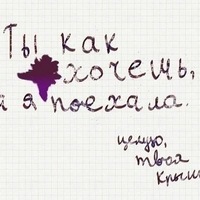 Ты как
хочешь,
а я поехала.
целую,
твоя
Крыша